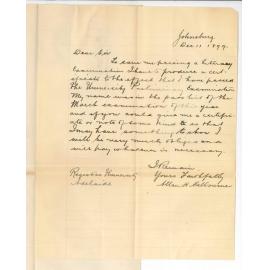 Johnsburg
Dec 11 1899
Dear Sir
To save me passing a literary
Examination I have to produce a cert
ificate to the effect that I have passed
The University Preliminary Examination
My name was in the pass list of the
March examination of this year
and if you could give me a certific
ate or note of some kind so that
I may have something to show I
will be very much obliged and
will pay whatever is necessary
I Remain
Yours Faithfully
Allen H
Registrar University
Adelaide